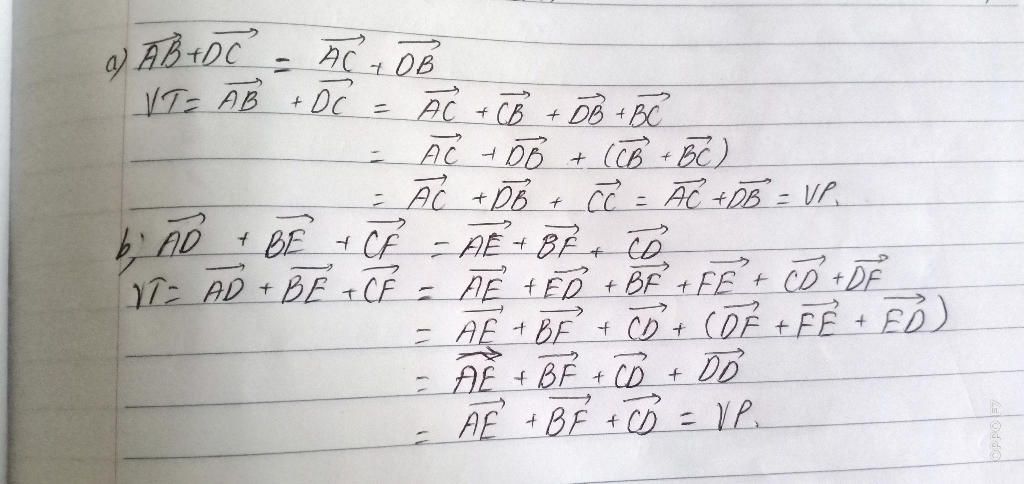 a) \overrightarrow{AB} + \overrightarrow{DC} = \overrightarrow{AC} + \overrightarrow{DB}
VT = \overrightarrow{AB} + \overrightarrow{DC} = \overrightarrow{AC} + \overrightarrow{CB} + \overrightarrow{DB} + \overrightarrow{BC}
= \overrightarrow{AC} + \overrightarrow{DB} + (\overrightarrow{CB} + \overrightarrow{BC})
= \overrightarrow{AC} + \overrightarrow{DB} + \overrightarrow{CC} = \overrightarrow{AC} + \overrightarrow{DB} = VP.
b; \overrightarrow{AD} + \overrightarrow{BE} + \overrightarrow{CF} = \overrightarrow{AE} + \overrightarrow{BF} + \overrightarrow{CD}
VT = \overrightarrow{AD} + \overrightarrow{BE} + \overrightarrow{CF} = \overrightarrow{AE} + \overrightarrow{ED} + \overrightarrow{BF} + \overrightarrow{FE} + \overrightarrow{CD} + \overrightarrow{DF}
= \overrightarrow{AE} + \overrightarrow{BF} + \overrightarrow{CD} + (\overrightarrow{DF} + \overrightarrow{FE} + \overrightarrow{ED})
= \overrightarrow{AE} + \overrightarrow{BF} + \overrightarrow{CD} + \overrightarrow{DD}
= \overrightarrow{AE} + \overrightarrow{BF} + \overrightarrow{CD} = VP.
OPPO F7